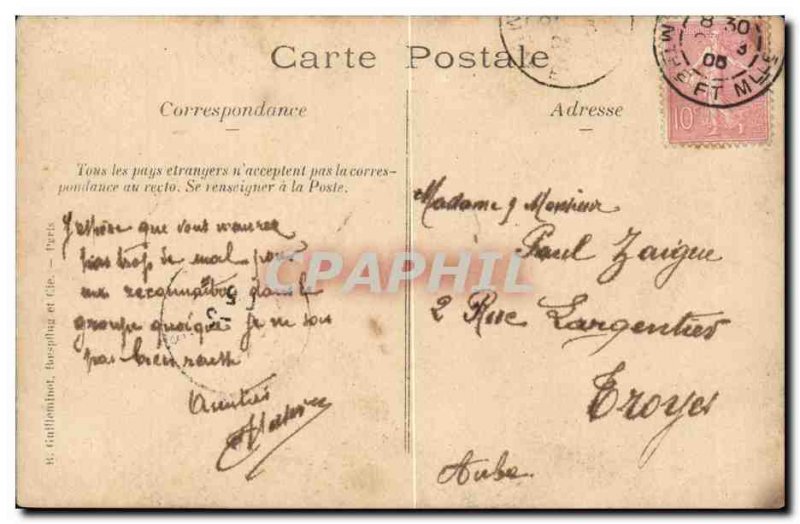 Carte Postale
Correspondance
Adresse
Tous les pays etrangers n'acceptent pas la corres-
pondance au recto. Se renseigner à la Poste.
J'espère que vous n'aurez
pas trop de mal pour
me reconnaître dans le
groupe quoique je ne sois
pas bien
Amitiés
Madame & Monsieur
Paul Zaigue
2 Rue Largentier
Troyes
Aube
10c
8 30
05
CPAPHIL
H. Guilleminot, Bœspflug et Cie. — Paris